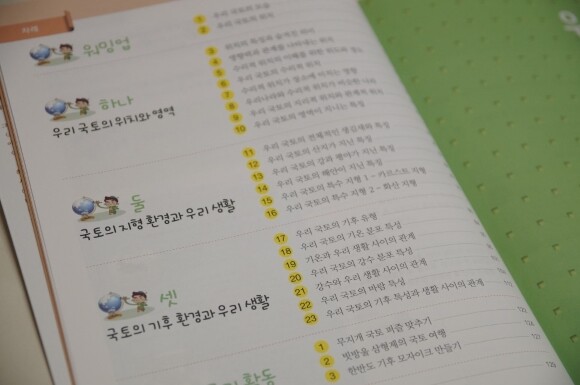 차례
워밍업
1 우리 국토의 모습
2 우리 국토의 위치
하나
우리 국토의 위치와 영역
3 위치의 특성과 숨겨진 의미
4 영향력과 관계를 나타내는 위치
5 수리적 위치의 이해를 위한 위도와 경도
6 우리 국토의 수리적 위치
7
8
9 우리 국토의 지리적 위치와 관계적 위치
10 우리 국토의 영역이 지니는 특성
둘
국토의 지형 환경과 우리 생활
11 우리 국토의 전체적인 생김새와 특성
12 우리 국토의 산지가 지닌 특성
13 우리 국토의 강과 평야가 지닌 특성
14 우리 국토의 해안이 지닌 특성
15 우리 국토의 특수 지형 1 - 카르스트 지형
16 우리 국토의 특수 지형 2 - 화산 지형
셋
국토의 기후 환경과 우리 생활
17 우리 국토의 기후 유형
18 우리 국토의 기온 분포 특성
19 기온과 우리 생활 사이의 관계
20 우리 국토의 강수 분포 특성
21 강수와 우리 생활 사이의 관계
22 우리 국토의 바람 특성
23 우리 국토의 기후 특성과 생활 사이의 관계
활동
1 무지개 국토 퍼즐 맞추기
2 빗방울 삼형제의 국토 여행
3 한반도 기후 모자이크 만들기